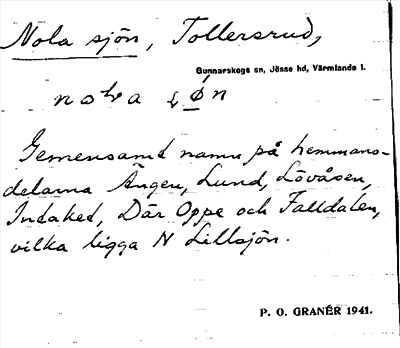 Nola sjön, Tollersrud,
Gunnarskogs sn, Jösse hd, Värmlands l.
Gemensamt namn på hemmans-
delarna Ängen, Lund, Lövåsen,
Indaked, Där Oppe och Falldalen,
vilka ligga N Lillsjön.
P. O. GRANÉR 1941.